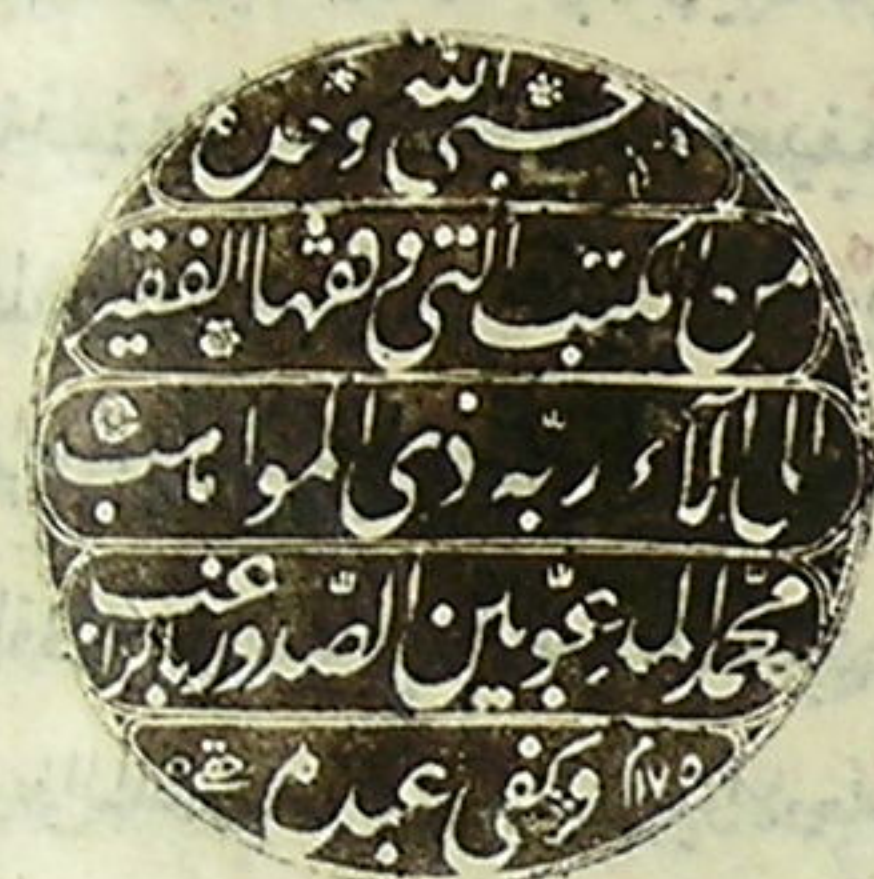 حسبي الله وحده
من الكتب التي وقفها الفقير
الى آلاء ربّه ذى المواهب
محمّد المدعوّ بين الصّدور بالراغب
١١٧٥ وكفى عبده